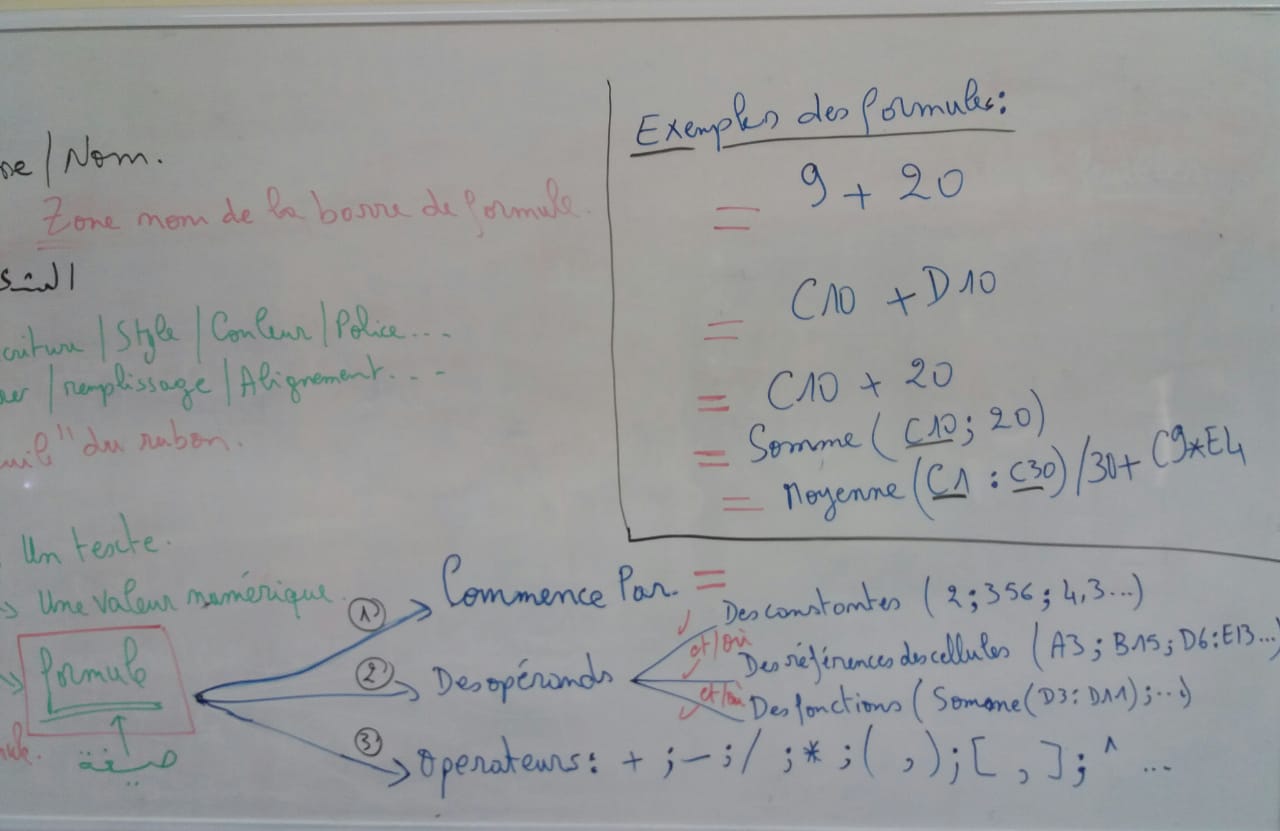 / Nom.
Zone nom de la barre de formule.
/ Style / Couleur / Police...
/ remplissage / Alignement...
" du ruban.
Un texte.
Une valeur numérique.
formule
صيغة
Exemples des formules:
= 9 + 20
= C10 + D10
= C10 + 20
= Somme ( C10 ; 20 )
= Moyenne ( C1 : C30 ) / 30 + C9*E4
① Commence Par. =
② Des opérands
Des constantes ( 2 ; 356 ; 4,3...)
et/où
Des références des cellules ( A3 ; B15 ; D6:E13...)
et/où
Des fonctions ( Somme(D3:D11) ; ...)
③ Operateurs : + ; - ; / ; * ; ( , ) ; [ , ] ; ^ ...